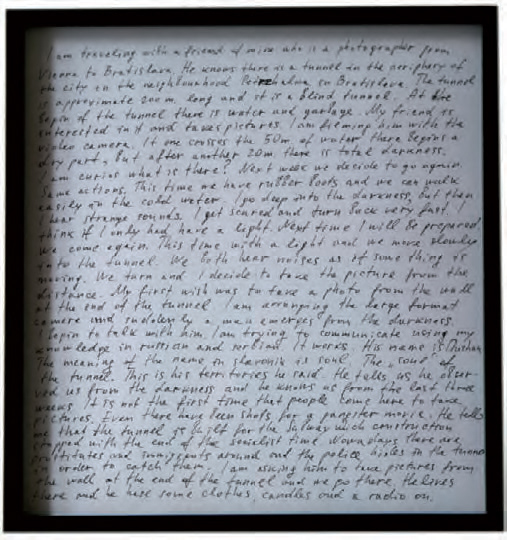 I am traveling with a friend of mine who is a photographer from
Vienna to Bratislava. He knows there is a tunnel in the periphery of
the city in the neighbourhood in Bratislava. The tunnel
is approximate 200m. long and it is a blind tunnel. At the
begin of the tunnel there is water and garbage. My friend is
interested in it and takes pictures. I am filming him with the
video camera. If one crosses the 50m of water there begins a
dry part, but after another 20m there is total darkness.
I am curius what is there? Next week we decide to go again
Same actions. This time we have rubber boots and we can walk
easily on the cold water. I go deep into the darkness, but then
I hear strange sounds. I get scared and turn back very fast. I
think if I only had have a light. Next time I will be prepared
We come again. This time with a light and we move slowly
into the tunnel. We both hear noises as if some thing is
moving. We turn and I decide to take the picture from the
distance. My first wish was to take a photo from the wall
at the end of the tunnel I am arranging the large format
camera and suddenly a man emerges from the darkness.
I begin to talk with him I am trying to communicate using my
knowledge in russian and serbian It works. His name is Dushan
The meaning of the name in slavonik is soul. The „soul" of
the tunnel. This is his territories he said. He tells us, he obser-
ved us from the darkness and he knows us from the last three
weeks. It is not the first time that people come here to take
pictures. Even there have been shots for a gangster movie. He tells
me that the tunnel is built for the subway wich construction
stopped with the end of the socialist time Nowadays there are
prostitutes and immigrants around and the police hides in the tunnel
in order to catch them. I am asking him to take pictures from
the wall at the end of the tunnel and we go there. He lives
there and he hase some clothes, candles and a radio on.